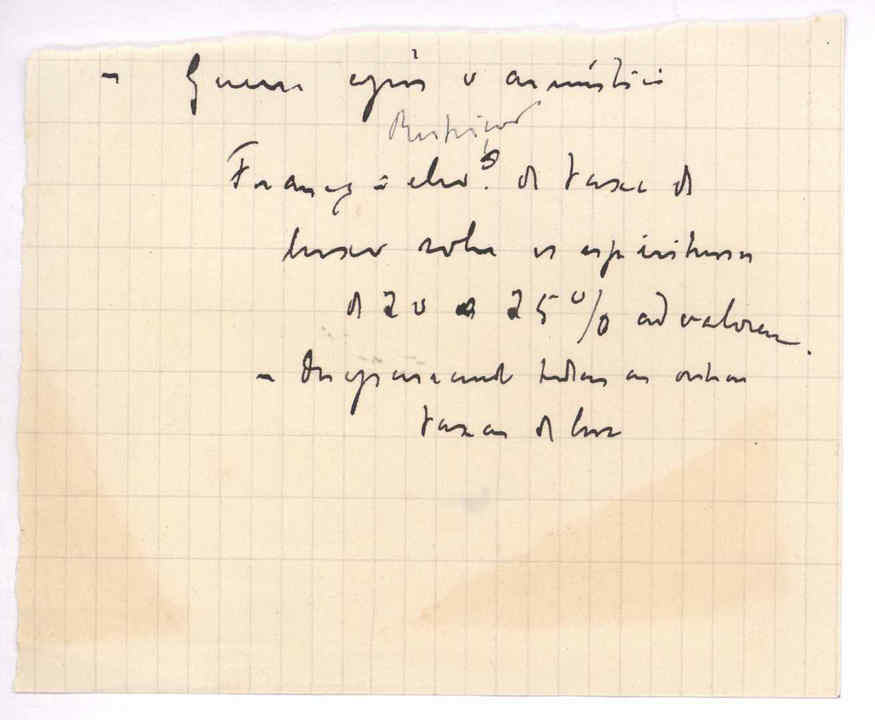 - Guerra após o armistício
França = elev.º de taxa de
luxo sobre os espirituosos
de 20 a 25% ad valorem.
- Desapareceram todas as outras
taxas de luxo